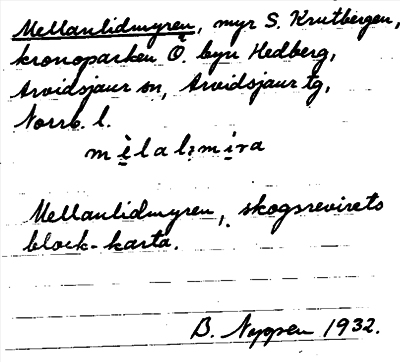 Mellanlidmyren, myr S. Krutbergen,
kronoparken Ö. byn Hedberg,
Arvidsjaur sn, Arvidsjaur tg,
Norrb. l.
mèlalimira
Mellanlidmyren, skogsrevirets
block-karta.
B. Nyppen 1932.